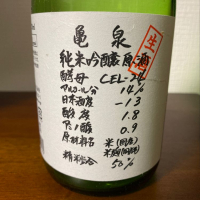 亀泉
生酒
純米吟醸原酒
酵母 CEL-24
アルコール分 14%
日本酒度 -13
酸度 1.8
アミノ酸 0.9
原材料名 米(国産)
米麹(国産米)
精米歩合 50%